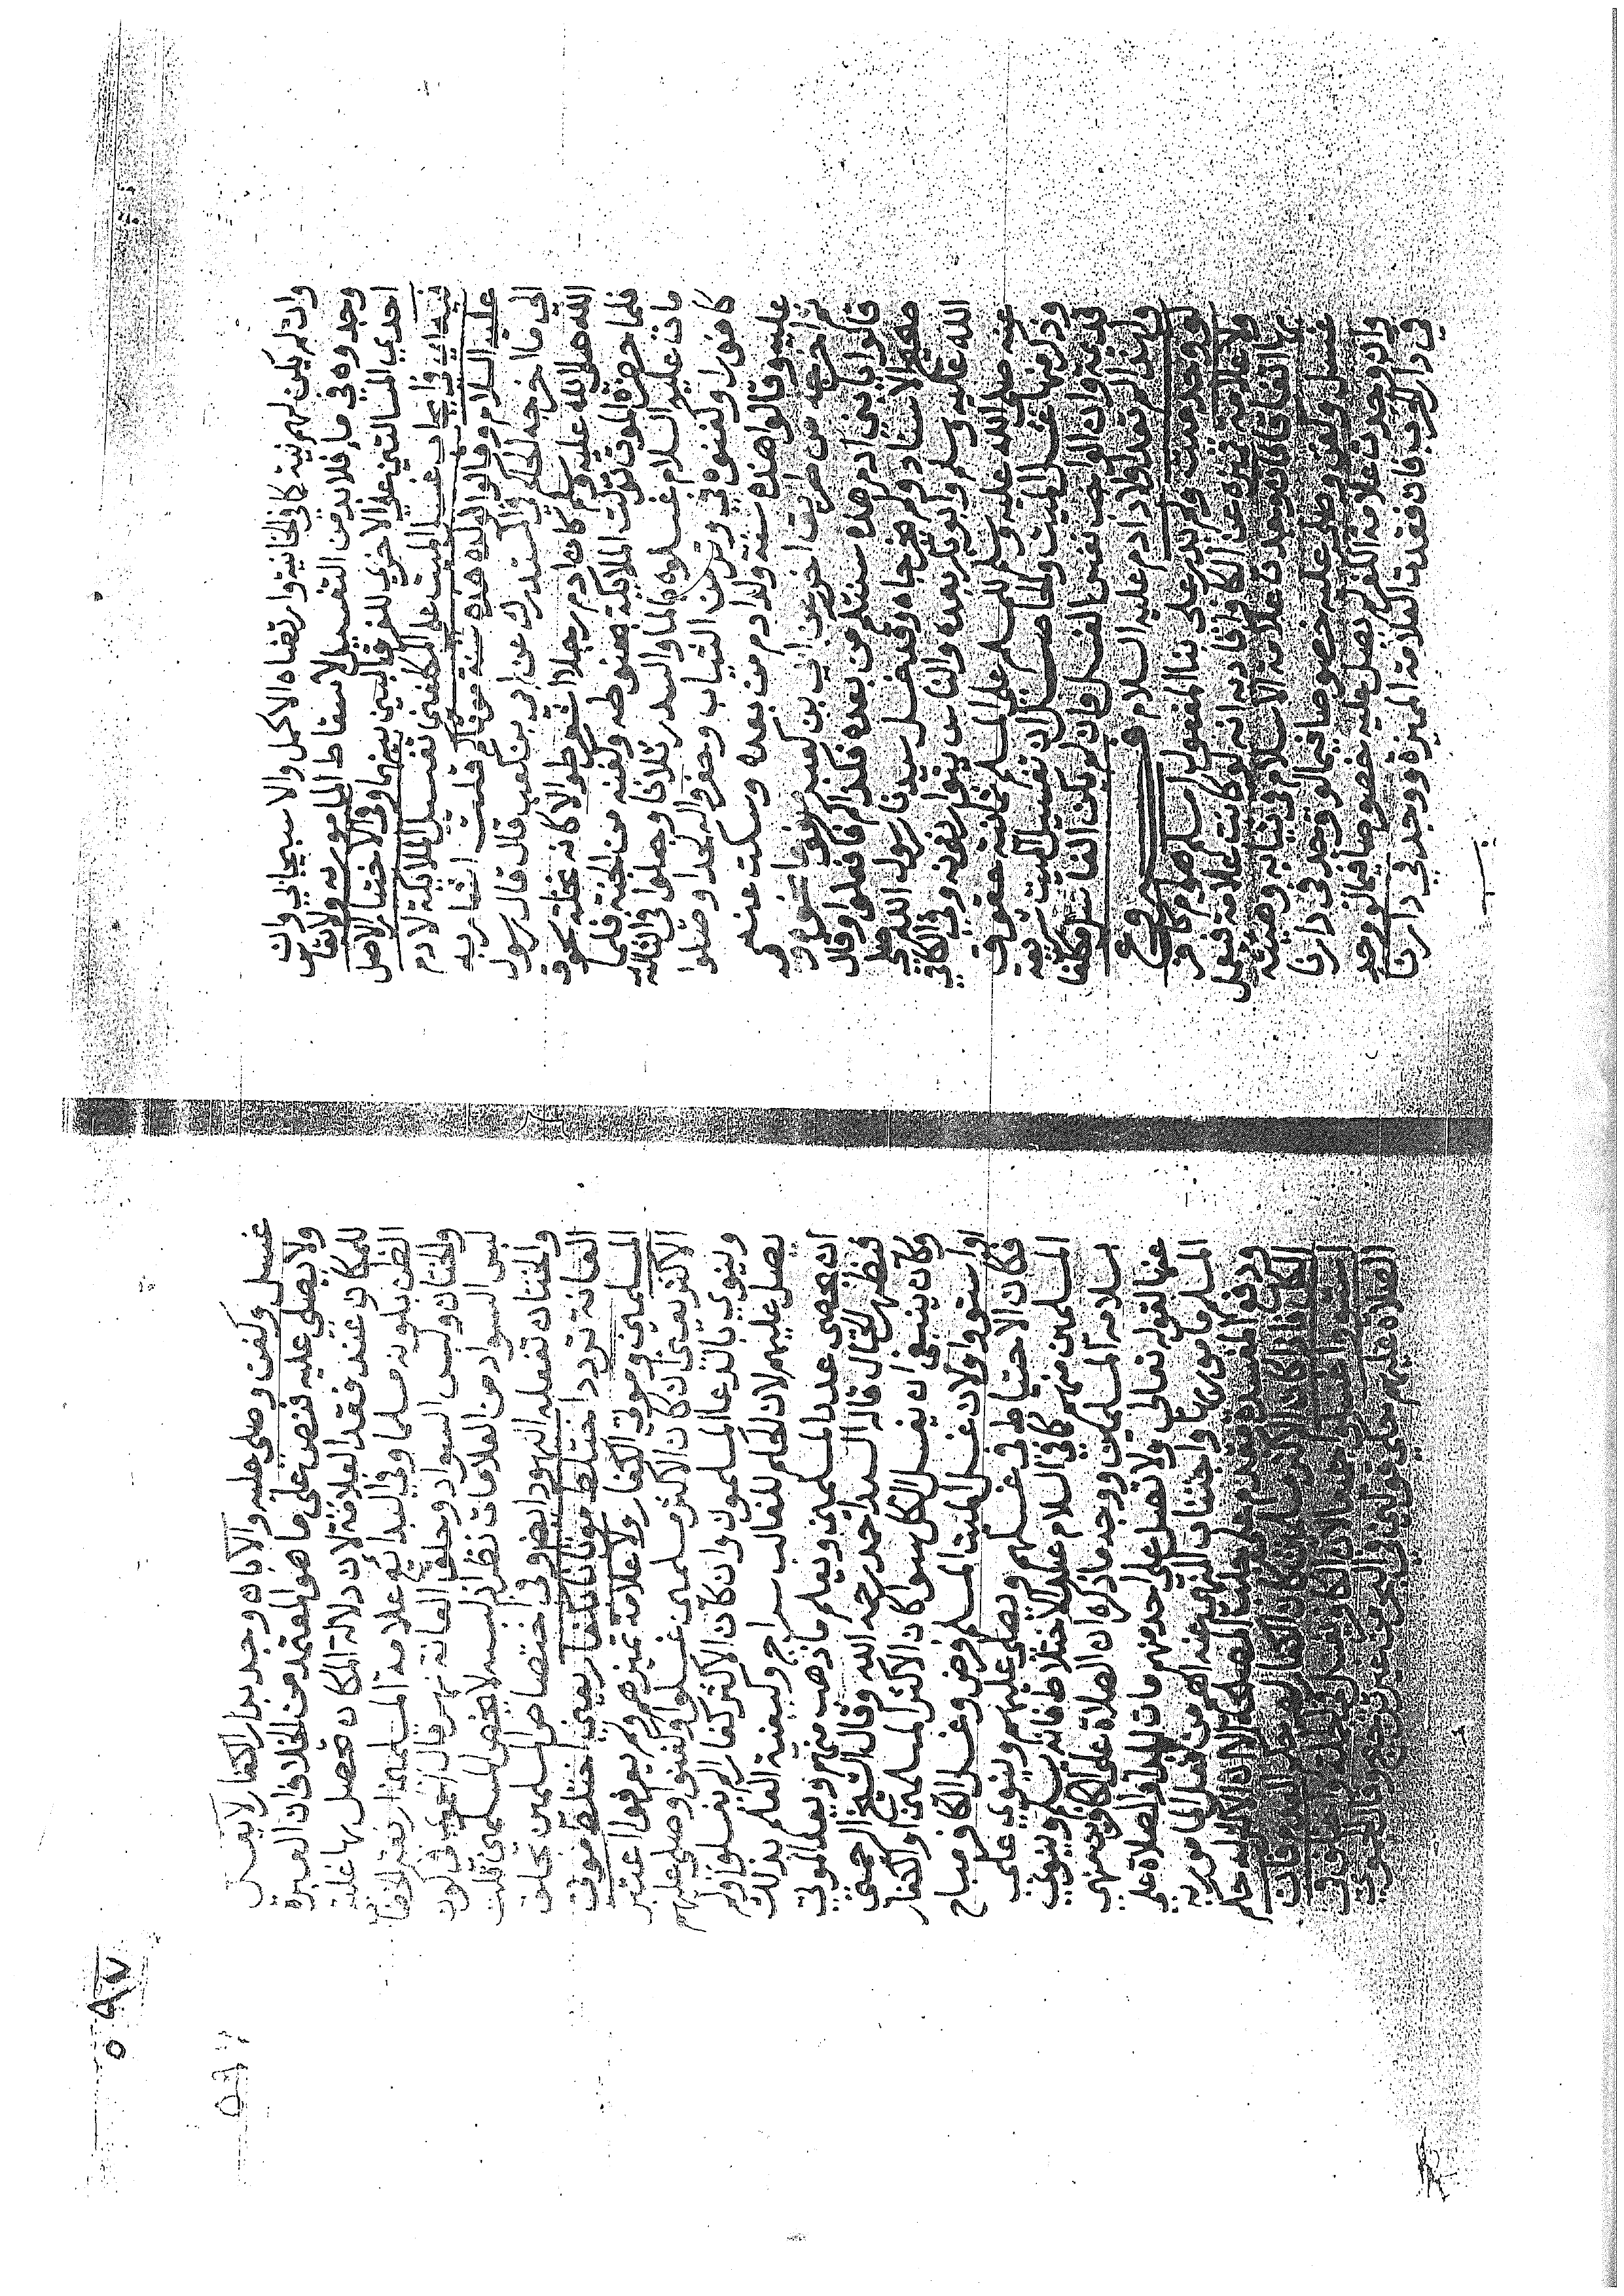 وان لم يكن لهم نية كما في الخانية وارتضاه الاكمل والاسبيجابي وان
وجدوه في ماء فلا بد من التغسيل لاسقاط المامور به ولا تقاس
احدي المسالتين علي الاخري للفرق البين بينهما وفي الاختيار الاصل
فيه اي في ايجاب غسل الميت علي المكلفين تغسيل الملايكة لادم
عليه السلام وقالوا لولده هذه سنة موتاكم قلت اشار به
الي ما اخرجه الحاكم في المستدرك عن ابي بن كعب قال قال رسول
الله صلي الله عليه وسلم كان ادم رجلا اشعر طوالا كانه نخلة سحوق
فلما حضره الموت نزلت الملايكة بحنوطه وكفنه من الجنة فلما
مات عليه السلام غسلوه بالماء والسدر ثلاثا وجعلوا في الثالثة
كافورا وكفنوه في وتر من الثياب وحفروا له لحدا وصلوا
عليه وقالوا هذه سنة ولد ادم من بعده وسكت عنه
ثم اخرجه من طريق اخر عن ابي بن كعب مرفوعا نحوه
قالوا يا بني ادم هذه سنتكم من بعده فكذاكم فافعلوا وقال
صحيح الاسناد ولم يخرجاه وقد غسل سيدنا رسول الله صلي
الله عليه وسلم وابو بكر بعده والناس يتوارثونه وفي الكافي
عنه صلي الله عليه وسلم للمسلم علي المسلم ثمانية حقوق
وذكر منها غسل الميت والحاصل ان تغسيل الميت شريعة
قديمة وان الواجب نفس الغسل وان لم يكن الغاسل مكلفا
ولهذا لم يعد اولاد ادم عليه السلام فروع
لو وجد ميت ولم يدر علي بناء المفعول امسلم هو ام كافر
ولا علامة تميزه عن الكافر افاد به انه لو كانت علامة فيعمل
بها اتفاقا فان وجدت علامة الاسلام في ثيابه وهيئته
غسل وكفن وصلي عليه خصوصا فيما لو وجد في دارنا
وان وجدت علامة الكفر لم يصل عليه خصوصا فيما لو وجد
في دار الحرب فان فقدت العلامة المميزة ووجد في دارنا
غسل وكفن وصلي عليه والا بان وجد بدار الكفار لا يغسل
ولا يصلي عليه فنص علي ما هو المعتمد من الخلاف ان العبرة
للمكان عند فقد العلامة لان دلالة المكان يحصل بها غلبة
الظن بكونه مسلما وفي البدايع علامة المسلمين اربعة الختان
والختان ولبس السواد وحلق العانة نهر قال الحموي في كون
لبس السواد من العلامات نظر اذ لبسه لا يخص المسلمين قلت
والختان تفعله اليهود ايضا وفي اختصاص المسلمين بحلق
العانة تردد اختلط موتانا بكفار يعني اختلط موتي
المسلمين وموتي الكفار ولا علامة تميزهم ولم يعرفوا اعتبر
الاكثر يعني ان كان الاكثر مسلمين غسلوا وكفنوا وصلي عليهم
وينوي بالدعاء المسلمون وان كان الاكثر كفارا لم يغسلوا ولم
يصل عليهم لان الحكم للغالب سراج وكيفية العلم بذلك
ان يحصي عدد المسلمين ويعلم ما ذهب منهم ويعد الموتي
فيظهر الحال قاله السيد احمد رحمه الله وقال الشيخ الرحمتي
وكان ينبغي ان يغسل الكل سواء كان الاكثر المسلمين او الكفار
او استووا ولان غسل الميت المسلم فرض وغسل الكافر مباح
فكان الاحتياط في غسلهم ويصلي عليهم وينوي علي
المسلمين منهم كما في السلام علي الاختلاط فانه يسلم وينوي
سلامه المسلمين ووجه ما ذكره ان الصلاة علي الكافر منهي
عنها لقوله تعالي ولا تصل علي احد منهم مات ابدا والصلاة علي
المسلم مامور بها واجتناب المنهي عنه اهم من فعل المامور به
ودفع المفسدة مقدم علي جلب المصلحة الا ان الاكثر له حكم